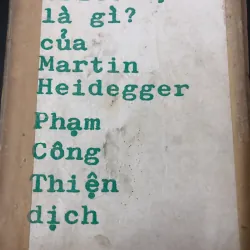 là gì?
của
Martin
Heidegger
Phạm
Công
Thiện
dịch